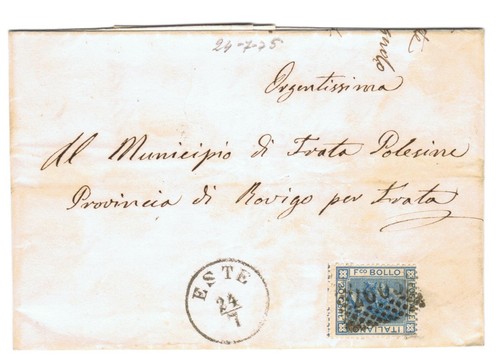 24-7-75
Orgentissima
Al Municipio di Frata Polesine
Provincia di Rovigo per Frata
ESTE
24
7
FCO BOLLO
ITALIANO